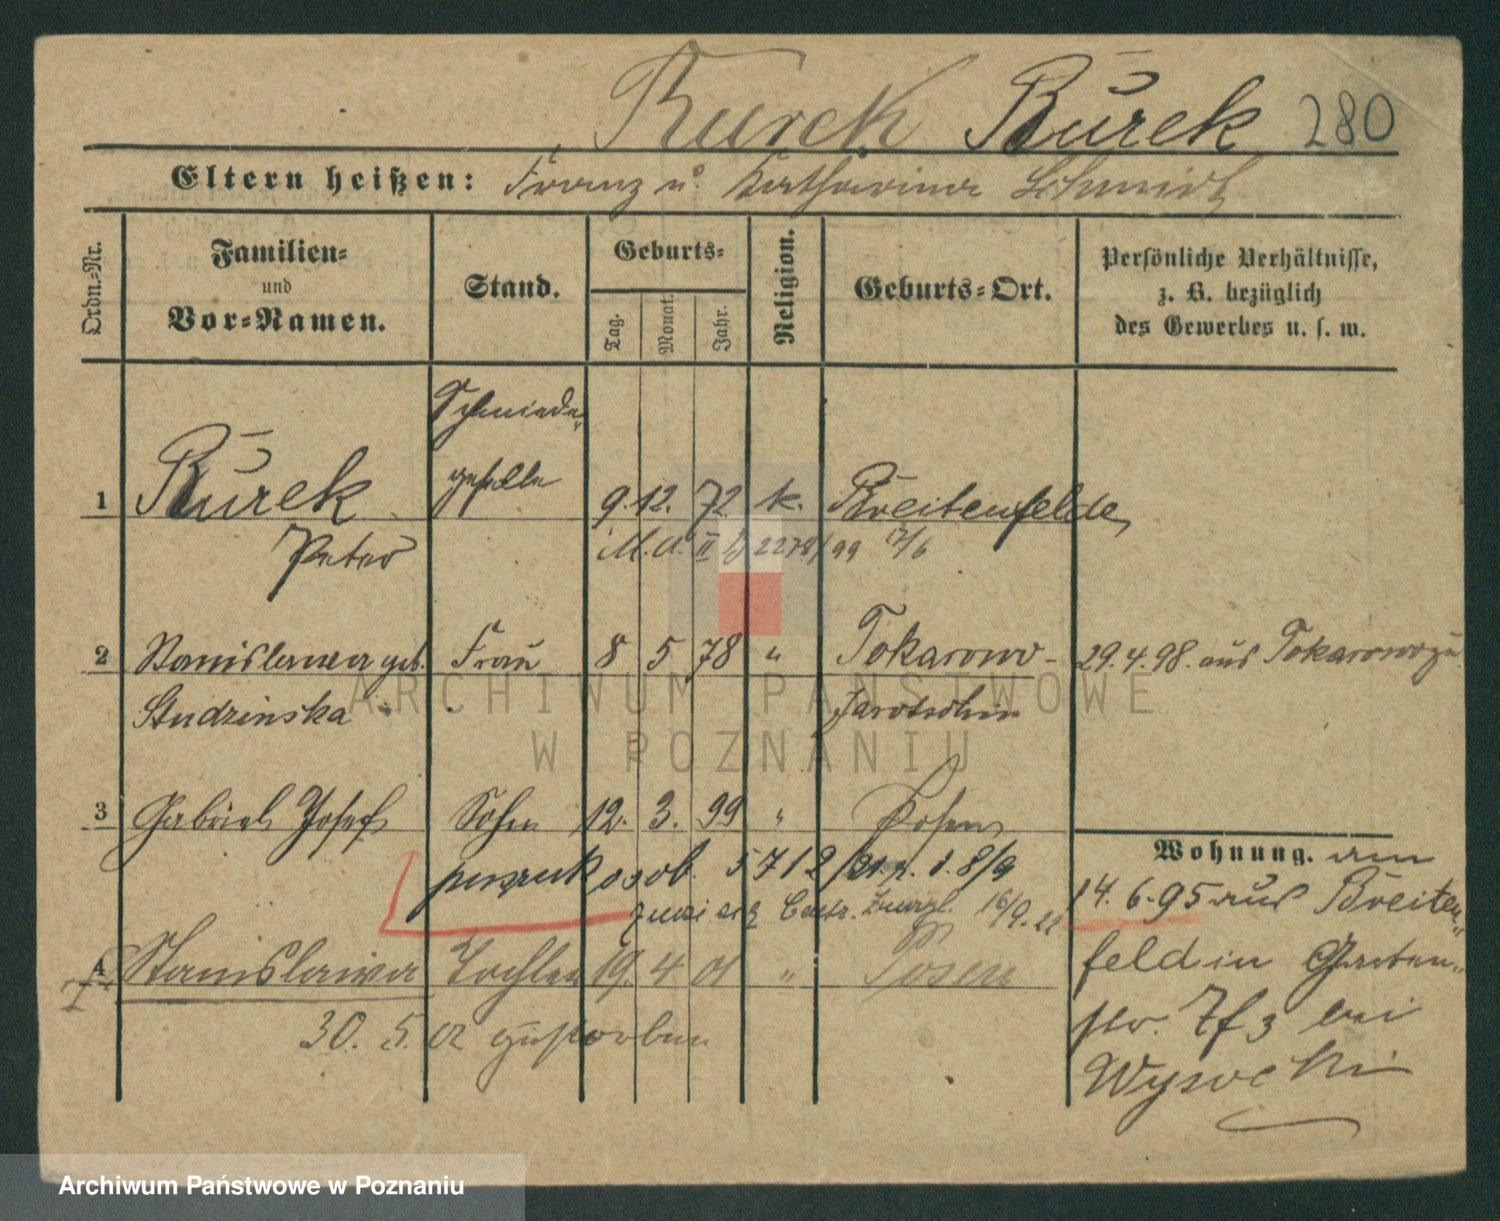 Burek Burek 280
Eltern heißen: Franz u. Katharina Schmidt
Ordn.-Nr.
Familien-
und
Vor-Namen.
Stand.
Geburts-
Tag.
Monat.
Jahr.
Religion.
Geburts-Ort.
Persönliche Verhältnisse,
z. B. bezüglich
des Gewerbes u. s. w.
Schmiede-
geselle
1 Burek 9. 12. 72 k. Breitenfelde
Peter M. A. II b 2278/99 7/6
2 Stanislawa geb. Frau 8 5 78 " Tokarowo- 29.4.98. aus Tokarowo zu
Studzinska Jarotschin
ARCHIWUM PAŃSTWOWE
W POZNANIU
3 Gabriel Josef Sohn 12. 3. 99 " Posen
Wohnung. am
osob. 5712/21. 1. 8/9
14. 6. 95 aus Breiten-
16/9. 22
4 Stanislawa Tochter 19. 4 01 " Posen
feld in Garten-
30. 5. 02 gestorben
str. 7f3 bei
Wysocki
Archiwum Państwowe w Poznaniu